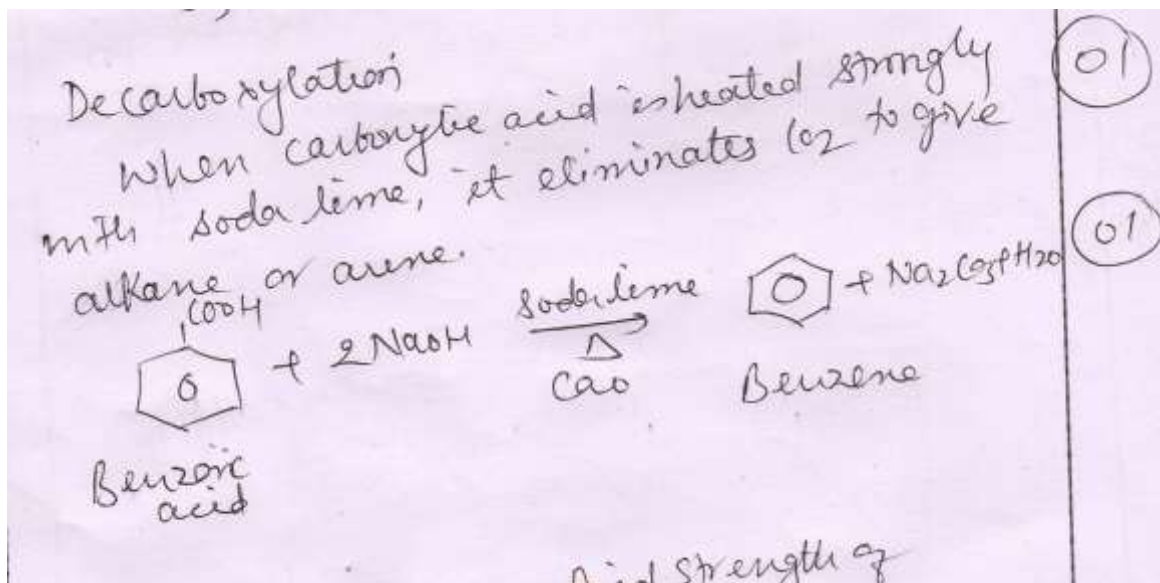 Decarboxylation
When carboxylic acid is heated strongly 01
with soda lime, it eliminates CO2 to give
alkane or arene. 01
COOH
+ 2 NaOH soda lime + Na2CO3 + H2O
Δ
CaO
Benzoic acid Benzene
Acid strength of